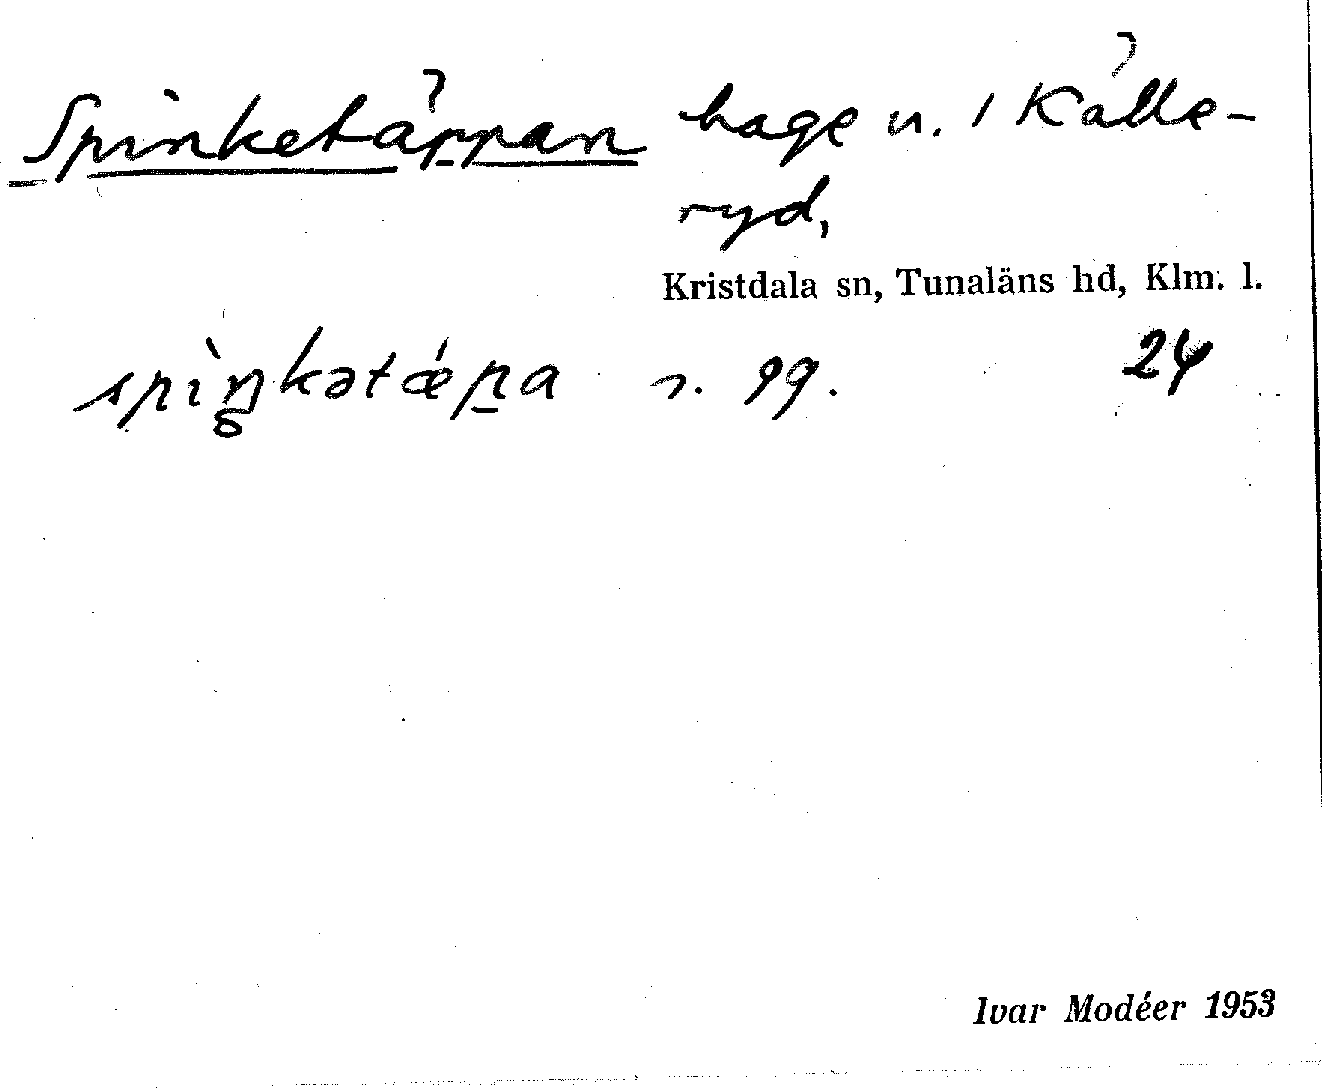 Spinketäppan hage n. 1 Källe-
ryd,
Kristdala sn, Tunaläns hd, Klm. l.
spìŋkətǽpa n. 99. 24
Ivar Modéer 1953